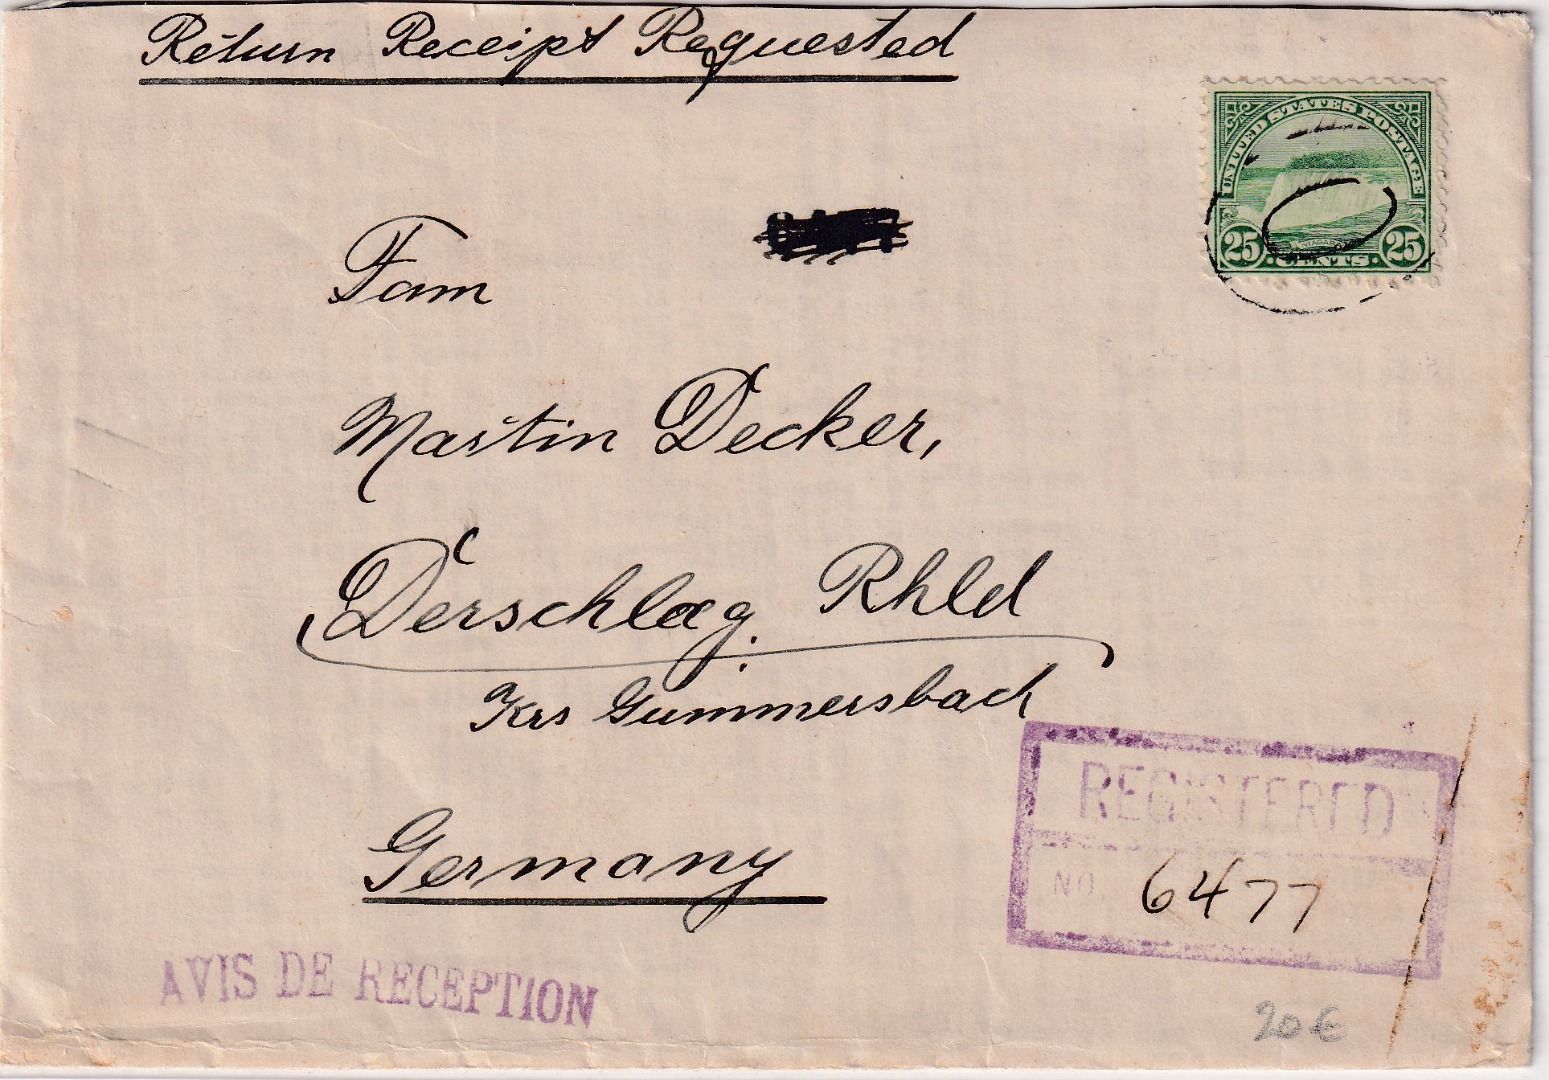 Return Receipt Requested
UNITED STATES POSTAGE
25 25
CENTS
Fam
Martin Decker,
Derschlag Rhld
Krs Gummersbach
Germany
REGISTERED
NO. 6477
AVIS DE RECEPTION
20 €